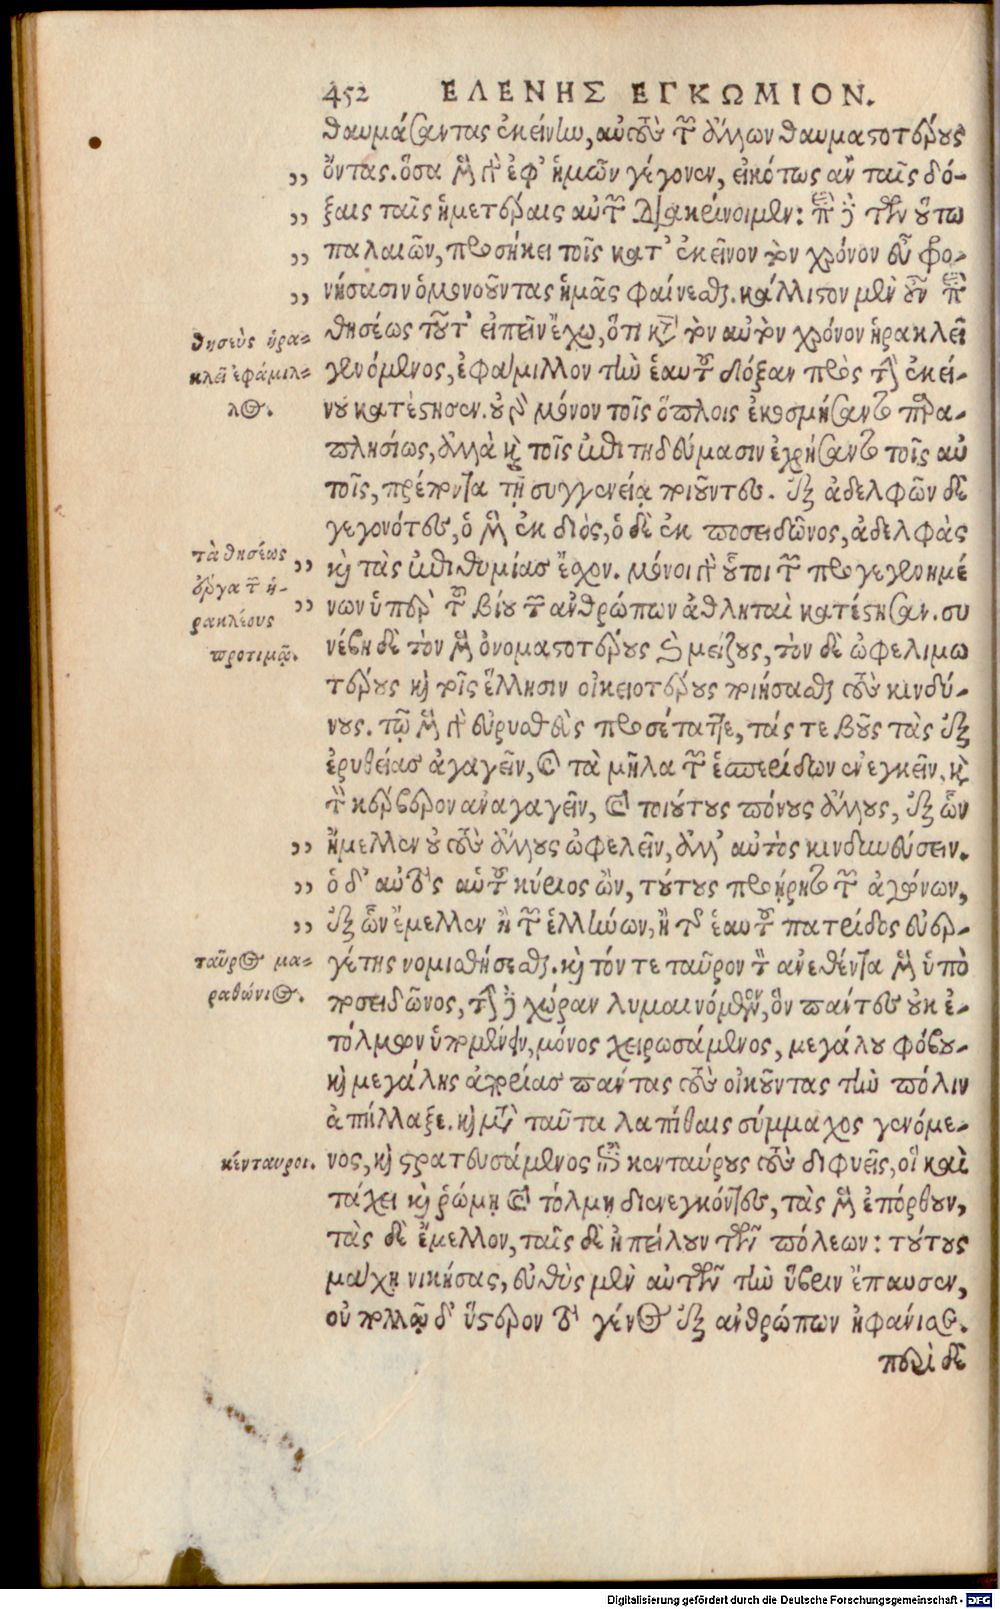 452 ΕΛΕΝΗΣ ΕΓΚΩΜΙΟΝ.
θαυμάσαντας ἐκείνην, αὐτοὺς τῶν ἄλλων θαυμαστοτέρους
,, ὄντας. ὅσα μὲν γὰρ ἐφ' ἡμῶν γέγονεν, εἰκότως ἂν ταῖς δό-
,, ξαις ταῖς ἡμετέραις αὐτῶν διακρίνοιμεν: ἐπὶ δὲ τῶν οὕτω
,, παλαιῶν, προσήκει τοῖς κατ' ἐκεῖνον τὸν χρόνον εὖ φρο-
,, νήσασιν ὁμονοοῦντας ἡμᾶς φαίνεσθαι. κάλλιστον μὲν οὖν ἐπὶ
θησεὺς ἡρα-
κλεῖ ἐφάμιλ-
λος.
θησέως τοῦτ' εἰπεῖν ἔχω, ὅτι κατὰ τὸν αὐτὸν χρόνον ἡρακλεῖ
γενόμενος, ἐφάμιλλον τὴν ἑαυτοῦ δόξαν πρὸς τὴν ἐκεί-
νου κατέστησεν. οὐ γὰρ μόνον τοῖς ὅπλοις ἐκοσμήσαντο παρα-
πλησίοις, ἀλλὰ καὶ τοῖς ἐπιτηδεύμασιν ἐχρήσαντο τοῖς αὐ
τοῖς, πρέποντα τῇ συγγενείᾳ ποιοῦντες. ἐξ ἀδελφῶν δὲ
γεγονότες, ὁ μὲν ἐκ διὸς, ὁ δὲ ἐκ ποσειδῶνος, ἀδελφὰς
τὰ θησέως
ἔργα τῶν ἡ-
ρακλέους
προτιμᾷ.
,, καὶ τὰς ἐπιθυμίας ἔσχον. μόνοι γὰρ οὗτοι τῶν προγεγενημέ
,, νων ὑπὲρ τοῦ βίου τῶν ἀνθρώπων ἀθληταὶ κατέστησαν. συ
νέβη δὲ τὸν μὲν ὀνομαστοτέρους καὶ μείζους, τὸν δὲ ὠφελιμω
τέρους καὶ τοῖς ἕλλησιν οἰκειοτέρους ποιήσασθαι τοὺς κινδύ-
νους. τῷ μὲν γὰρ εὐρυσθεὺς προσέταττε, τάς τε βοῦς τὰς ἐξ
ἐρυθείας ἀγαγεῖν, καὶ τὰ μῆλα τῶν ἑσπερίδων ἐνεγκεῖν, καὶ
τὸν κέρβερον ἀναγαγεῖν, καὶ τοιούτους πόνους ἄλλους, ἐξ ὧν
,, ἤμελλεν οὐ τοὺς ἄλλους ὠφελεῖν, ἀλλ' αὐτὸς κινδυνεύσειν.
,, ὁ δ' αὐτὸς αὑτοῦ κύριος ὢν, τούτους προῄρητο τῶν ἀγώνων,
,, ἐξ ὧν ἔμελλεν ἢ τῶν ἑλλήνων, ἢ τῆς ἑαυτοῦ πατρίδος εὐερ-
ταῦρος μα-
ραθώνιος.
γέτης νομισθήσεσθαι. καὶ τόν τε ταῦρον τὸν ἀνεθέντα μὲν ὑπὸ
ποσειδῶνος, τὴν δὲ χώραν λυμαινόμενον, ὃν πάντες οὐκ ἐ-
τόλμων ὑπομένειν, μόνος χειρωσάμενος, μεγάλου φόβου
καὶ μεγάλης ἀπορίας πάντας τοὺς οἰκοῦντας τὴν πόλιν
ἀπήλλαξε. καὶ μετὰ ταῦτα λαπίθαις σύμμαχος γενόμε-
κένταυροι.
νος, καὶ στρατευσάμενος ἐπὶ κενταύρους τοὺς διφυεῖς, οἳ καὶ
τάχει καὶ ῥώμῃ καὶ τόλμῃ διενεγκόντες, τὰς μὲν ἐπόρθουν,
τὰς δὲ ἔμελλον, ταῖς δὲ ἠπείλουν τῶν πόλεων: τούτους
μάχῃ νικήσας, εὐθὺς μὲν αὐτῶν τὴν ὕβριν ἔπαυσεν,
οὐ πολλῷ δ' ὕστερον τὸ γένος ἐξ ἀνθρώπων ἠφάνισε.
περὶ δὲ
Digitalisierung gefördert durch die Deutsche Forschungsgemeinschaft - DFG